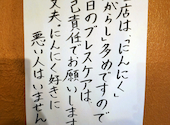 店は、「にんにく」
がらし」多めですので
日のブレスケアは、
己責任でお願いしま
丈夫、にんにく好きに
悪い人はいません